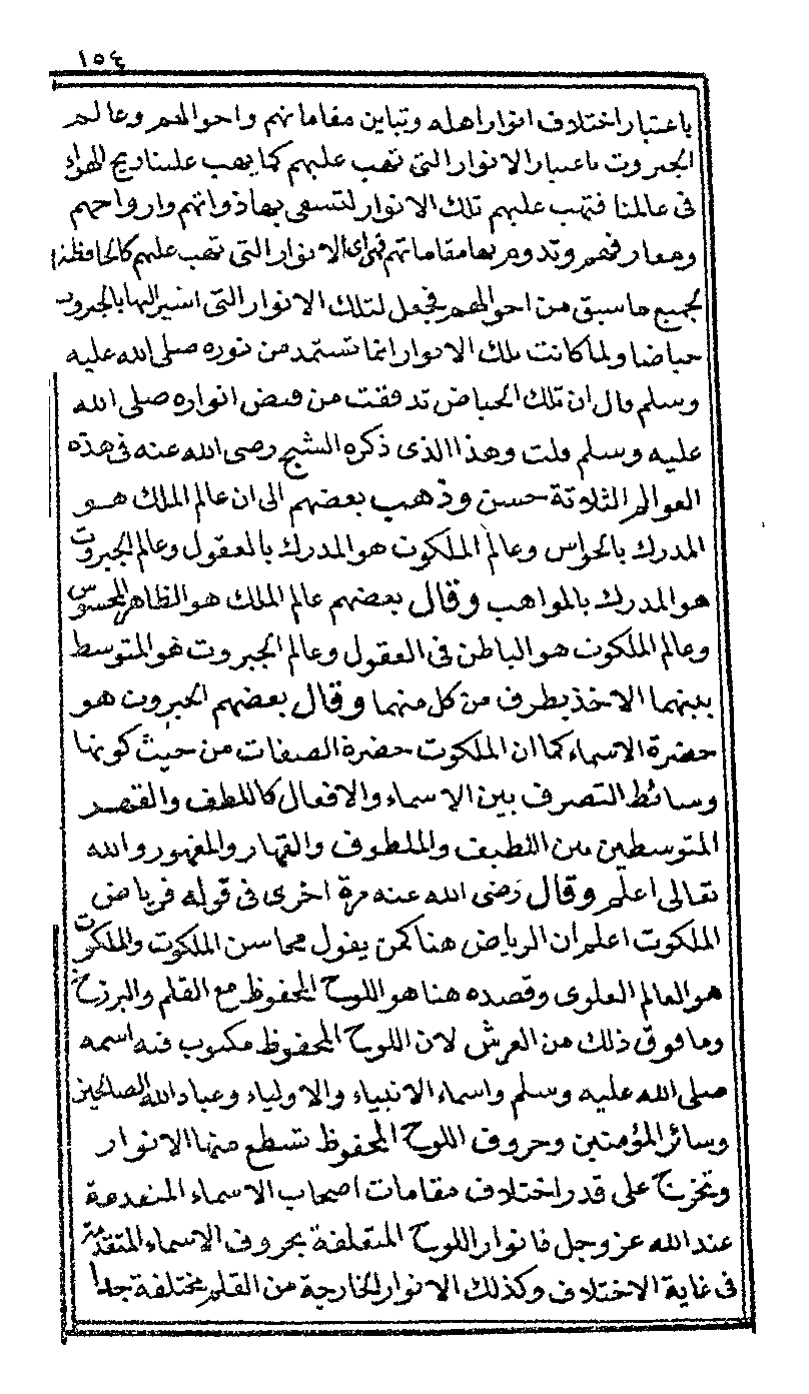 ١٥٤
باعتبار اختلاف انوار اهله وتباين مقاماتهم واحوالهم وعالم
الجبروت باعتبار الانوار التى تهب عليهم كما يهب علينا ريح الهواء
فى عالمنا فتهب عليهم تلك الانوار لتسقى بها ذواتهم وارواحهم
ومعارفهم وتدوم بها مقاماتهم فهى اى الانوار التى تهب عليهم كالحافظة
لجميع ما سبق من احوالهم فجعل لتلك الانوار التى اشير اليها بالجبروت
حياضا ولما كانت تلك الانوار انما تستمد من نوره صلى الله عليه
وسلم قال ان تلك الحياض تدفقت من فيض انواره صلى الله
عليه وسلم قلت وهذا الذى ذكره الشيخ رضى الله عنه فى هذه
العوالم الثلاثة حسن وذهب بعضهم الى ان عالم الملك هو
المدرك بالحواس وعالم الملكوت هو المدرك بالعقول وعالم الجبروت
هو المدرك بالمواهب وقال بعضهم عالم الملك هو الظاهر المحسوس
وعالم الملكوت هو الباطن فى العقول وعالم الجبروت هو المتوسط
بينهما الاخذ بطرف من كل منهما وقال بعضهم الجبروت هو
حضرة الاسماء كما ان الملكوت حضرة الصفات من حيث كونها
وسائط التصرف بين الاسماء والافعال كاللطف والقهر
المتوسطين بين اللطيف والملطوف والقهار والمقهور والله
تعالى اعلم وقال رضى الله عنه مرة اخرى فى قوله فرياض
الملكوت اعلم ان الرياض هنا كمن يقول محاسن الملكوت والملكوت
هو العالم العلوى وقصده هنا هو اللوح المحفوظ مع القلم والبرزخ
وما فوق ذلك من العرش لان اللوح المحفوظ مكتوب فيه اسمه
صلى الله عليه وسلم واسماء الانبياء والاولياء وعباد الله الصالحين
وسائر المؤمنين وحروف اللوح المحفوظ تسطع منها الانوار
وتخرج على قدر اختلاف مقامات اصحاب الاسماء المتقدمة
عند الله عز وجل فانوار اللوح المتعلقة بحروف الاسماء المتقدمة
فى غاية الاختلاف وكذلك الانوار الخارجة من القلم مختلفة جدا